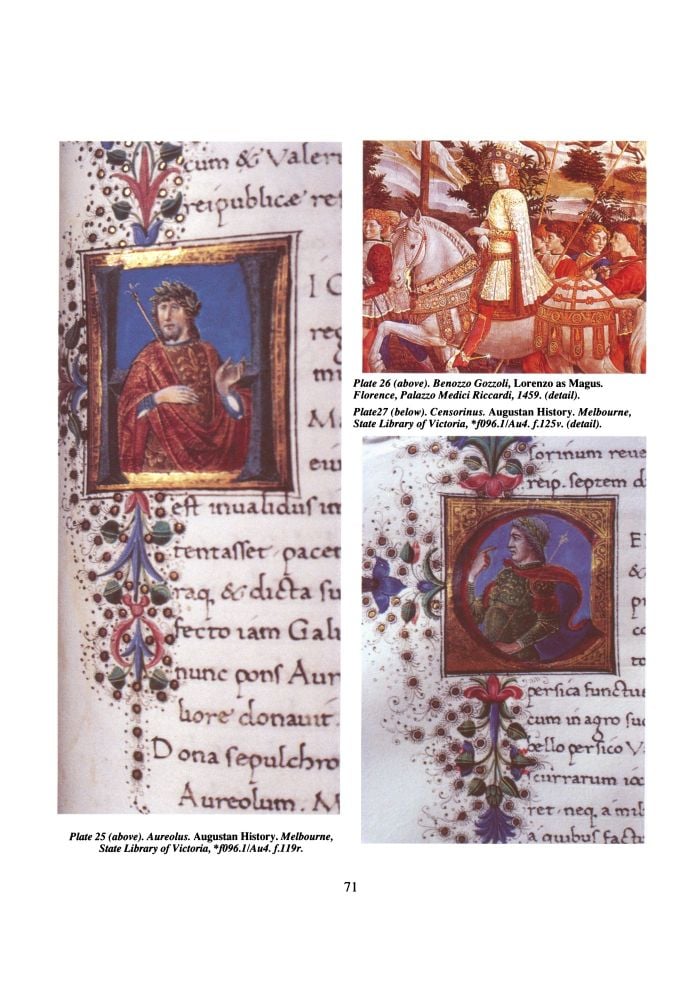 cum & Valeri
reipublicæ re
I C
reg
M
eiu
est inualidus
tentasset pace
raq, & dicta su
fecto iam Gali
nunc pons Aur
liore donauit.
Dona sepulchro
Aureolum. M
Plate 25 (above). Aureolus. Augustan History. Melbourne,
State Library of Victoria, *f096.1/Au4. f.119r.
Plate 26 (above). Benozzo Gozzoli, Lorenzo as Magus.
Florence, Palazzo Medici Riccardi, 1459. (detail).
Plate27 (below). Censorinus. Augustan History. Melbourne,
State Library of Victoria, *f096.1/Au4. f.125v. (detail).
sorinum reue
reip. septem d
E
&
to
persica functus
cum in agro suo
bello persico V
currarum
ret neq, a mil
a quibus factu
71